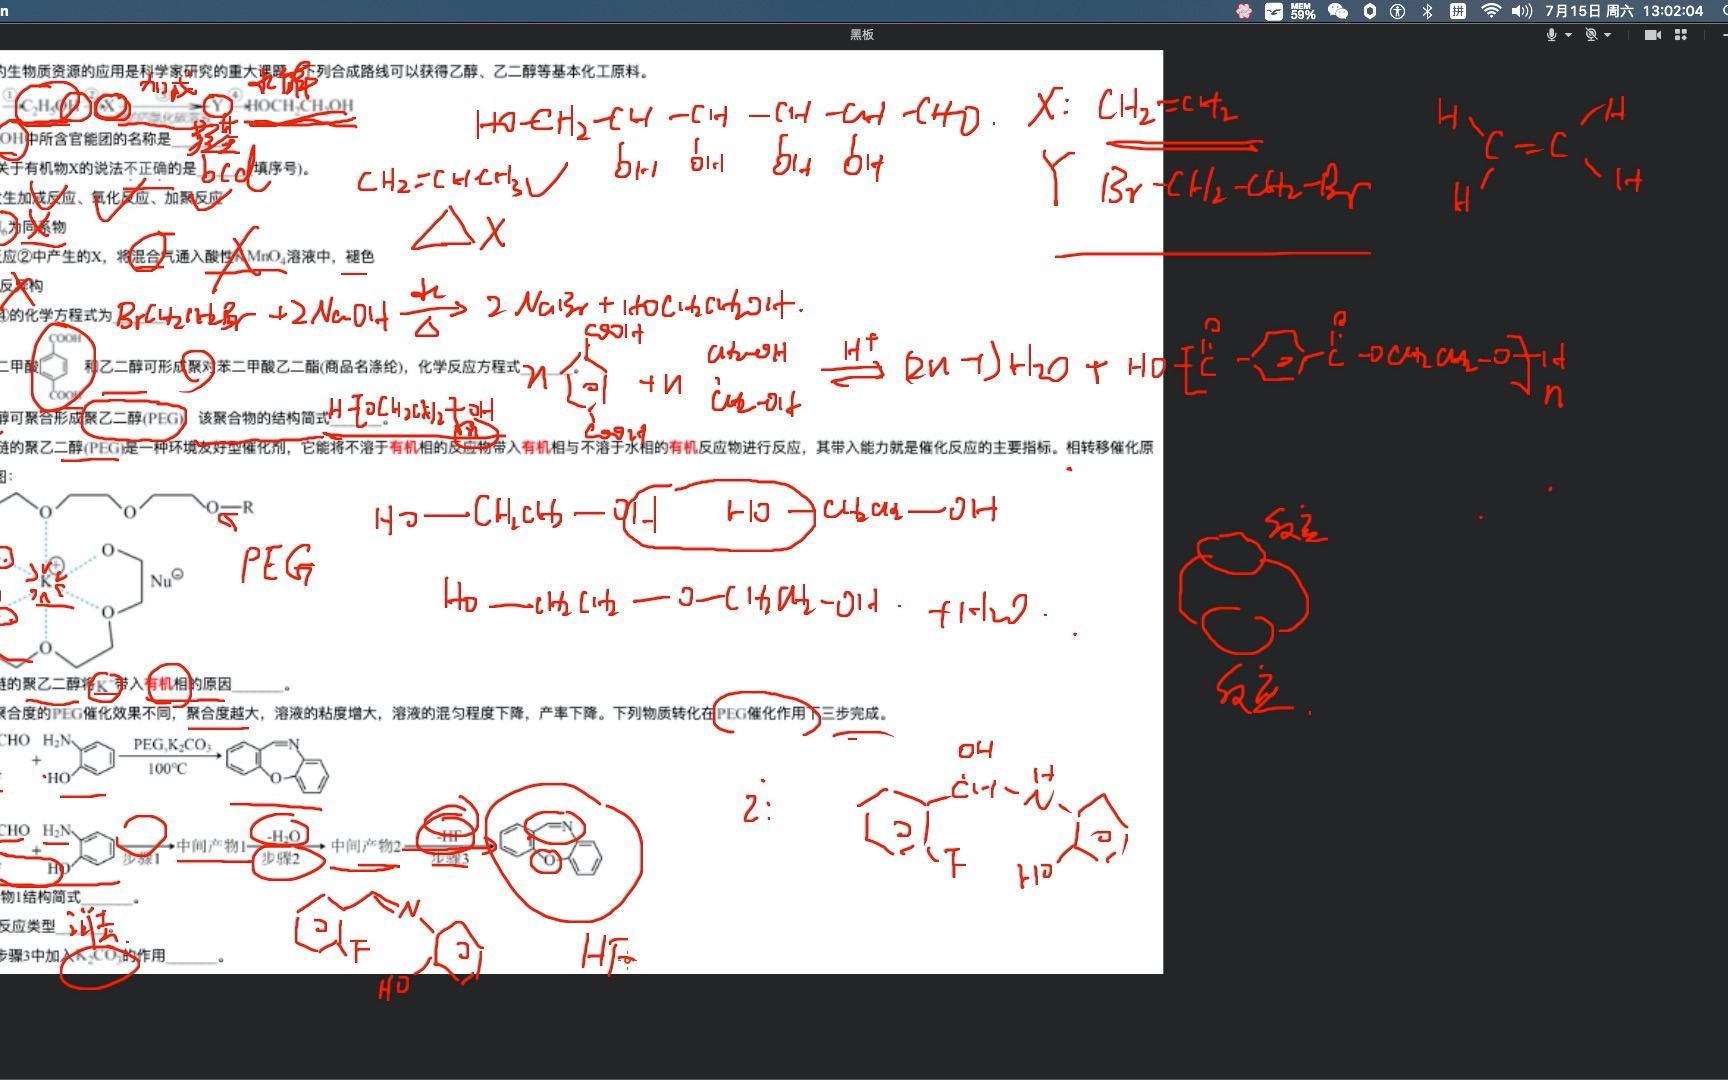 n
MEM
59%
拼
7月15日 周六 13:02:04
黑板
的生物质资源的应用是科学家研究的重大课题。下列合成路线可以获得乙醇、乙二醇等基本化工原料。
加成 水解
① C₂H₅OH ② X Y ④ HOCH₂CH₂OH
HO-CH₂-CH-CH-CH-CH-CHO.
OH OH OH OH
X: CH₂=CH₂
H H
C=C
H H
OH中所含官能团的名称是
关于有机物X的说法不正确的是 bcd (填序号)。
CH₂=CH-CH₃ ✓
Y Br-CH₂-CH₂-Br
发生加成反应、氧化反应、加聚反应
为同系物
△ X
反应②中产生的X，将混合气通入酸性KMnO₄溶液中，褪色
反异构
④的化学方程式为 BrCH₂CH₂Br +2NaOH 水 △ 2NaBr+HOCH₂CH₂OH.
COOH
二甲酸 和乙二醇可形成聚对苯二甲酸乙二酯(商品名涤纶)，化学反应方程式
COOH
n COOH COOH +n CH₂-OH CH₂-OH H⁺ (2n-1)H₂O + HO-[C(O)- -C(O)-OCH₂CH₂-O]H n
醇可聚合形成聚乙二醇(PEG) 该聚合物的结构简式 H-[OCH₂CH₂]n-OH 。
链的聚乙二醇(PEG)是一种环境友好型催化剂，它能将不溶于有机相的反应物带入有机相与不溶于水相的有机反应物进行反应，其带入能力就是催化反应的主要指标。相转移催化原
图:
O O O-R
HO-CH₂CH₂-OH HO-CH₂CH₂-OH
反应
O
K⊕ Nu⊖
PEG
O
O
HO-CH₂CH₂-O-CH₂CH₂-OH. +H₂O.
反应.
链的聚乙二醇将K⁺带入有机相的原因______。
聚合度的PEG催化效果不同，聚合度越大，溶液的粘度增大，溶液的混匀程度下降，产率下降。下列物质转化在PEG催化作用下三步完成。
CHO + H₂N HO PEG,K₂CO₃ 100℃ N O
2: OH CH-NH F HO
CHO + H₂N HO 步骤1 中间产物1 -H₂O 步骤2 中间产物2 -HF 步骤3 N O
物1结构简式______。
反应类型 消去 。
N F HO
HF
步骤3中加入K₂CO₃的作用______。